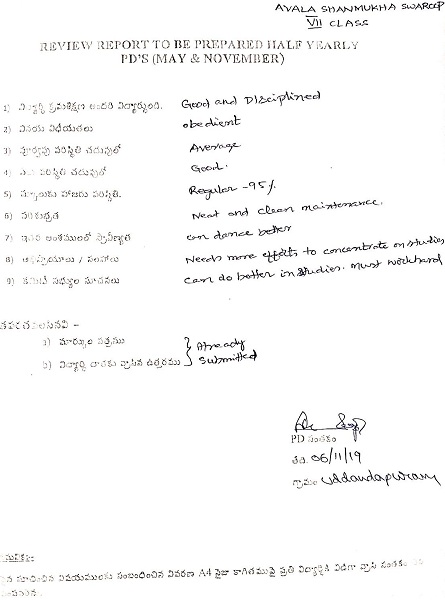 AVALA SHANMUKHA SWAROOP
VII CLASS
REVIEW REPORT TO BE PREPARED HALF YEARLY
PD'S (MAY & NOVEMBER)
1) విద్యార్థి క్రమశిక్షణ ఇతర విద్యార్థులతో. Good and Disciplined
2) వినయ విధేయతలు obedient
3) పూర్వపు పరిస్థితి చదువులో Average
4) పరిస్థితి చదువులో Good.
5) స్కూలుకు హాజరు పరిస్థితి. Regular -95%
6) పరిశుభ్రత Neat and clean maintenance.
7) ఇతర అంశములలో ప్రావీణ్యత can dance better
8) అభిప్రాయాలు / సలహాలు Needs more efforts to concentrate on studies
9) కమిటీ సభ్యుల సూచనలు Can do better in studies. Must workhard
a) మార్కుల పత్రము } Already
b) విద్యార్థి దాతకు వ్రాసిన ఉత్తరము } Submitted
PD సంతకం
తేది 06/11/19
గ్రామం Uddandapuram
సూచించిన విషయములకు సంబంధించిన వివరణ A4 సైజు కాగితముపై ప్రతి విద్యార్థికి విడిగా వ్రాసి సంతకం